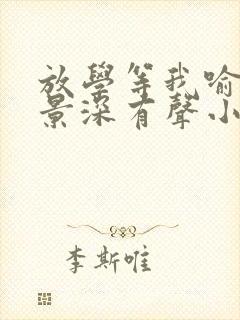 放學等我喻
景深有聲小
李斯唯